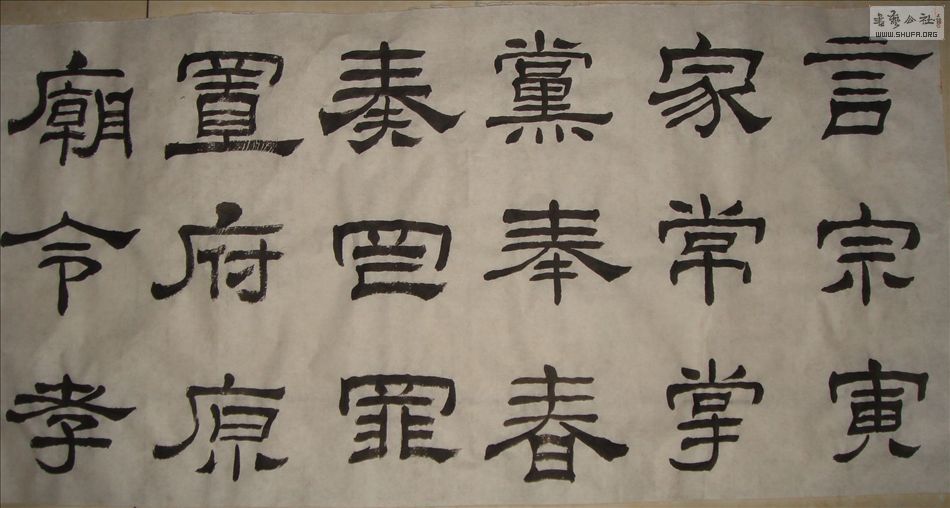 言宗寅
家常掌
黨奉春
奏罪
置府原
廟令孝
书艺公社
WWW.SHUFA.ORG